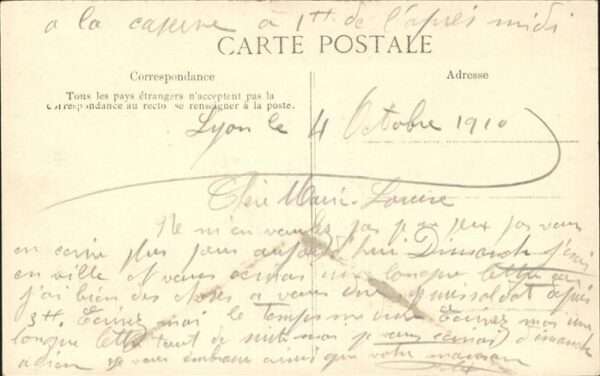 a la caserne à 1H de l'après midi
CARTE POSTALE
Correspondance
Adresse
Tous les pays étrangers n'acceptent pas la
Correspondance au recto se renseigner à la poste.
Lyon le 4 Octobre 1910
Chère Marie-Louise
Ne m'en voulez pas je ne peux pas vous
en ecrire plus Dimanche j'irai
en ville et vous ecrirai une longue lettre car
j'ai bien des choses a vous dire soldat depuis
3H. Ecrivez moi le temps me dure Ecrivez moi une
longue lettre tout de suite moi je vous ecrirai dimanche
adieu je vous embrasse ainsi que votre maman